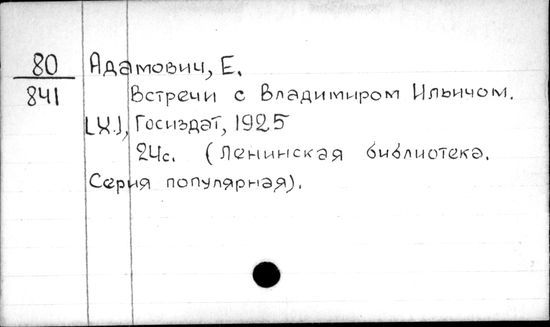 80 Адамович, Е.
841 Встречи с Владимиром Ильичом.
[Х.], Госиздат, 1925
24с. (Ленинская библиотека.
Серия популярная).